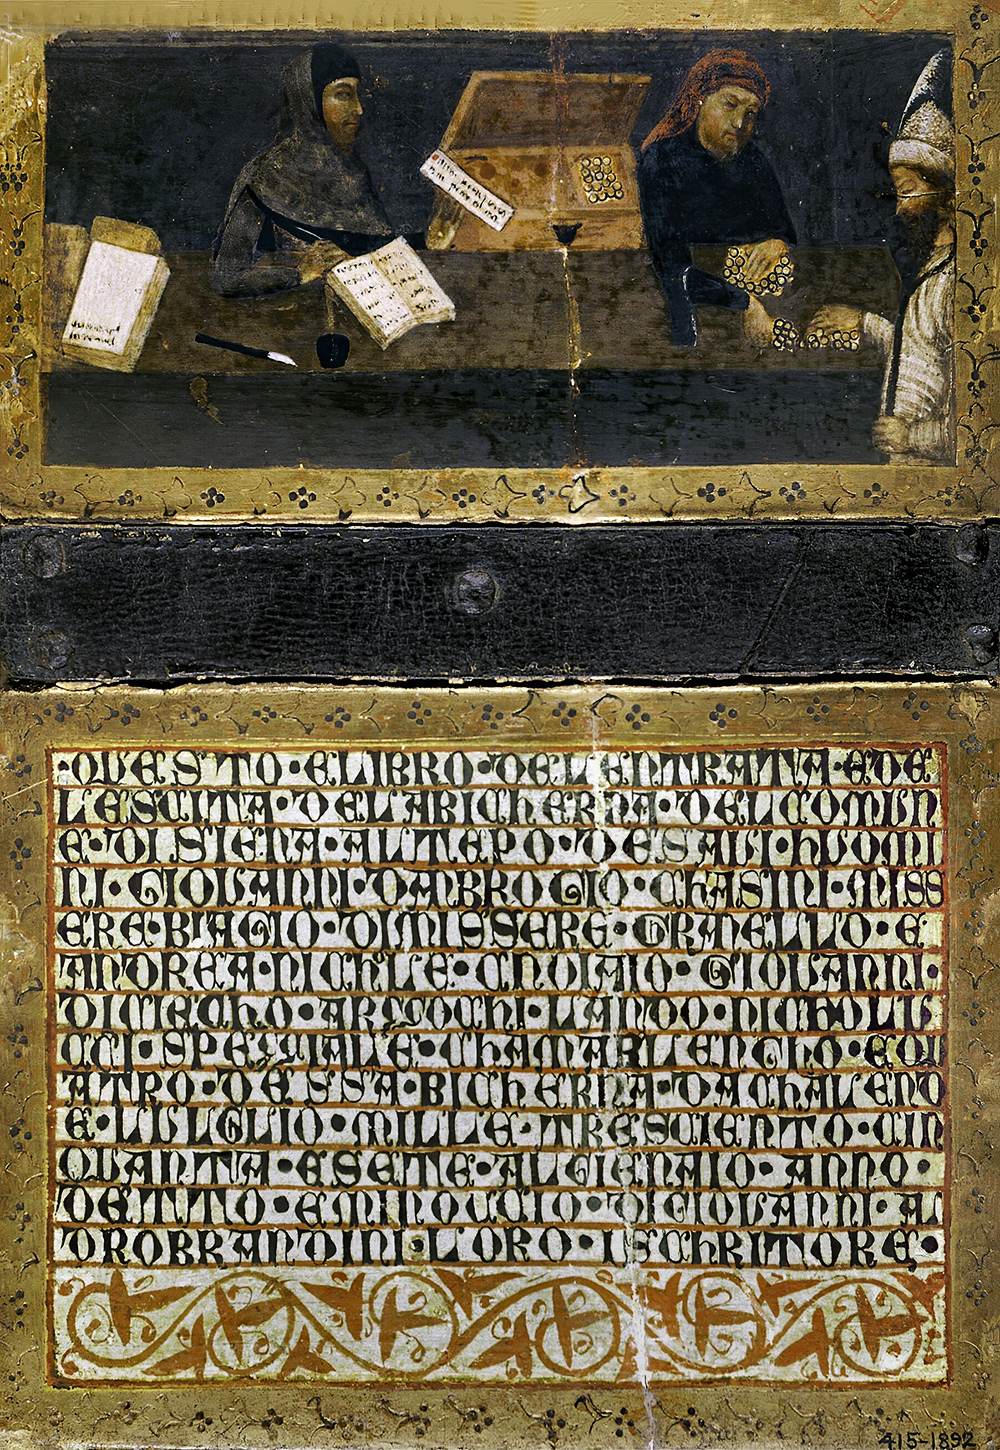 ·QUESTO·ELIBRO·DELENTRATA·EDE
LESCITA·DELABICHERNA·DELCOMUN
E·DISIENA·ALTEPO·DESAVI·HUOMI
NI·GIOVANNI·DAMBROGIO·CHASINI·MISS
ERE·BIAGIO·DIMISSERE·GRAELLO·E
ANDREA·NICHOLE·CHOIAIO·GIOVANNI·
DICIECHO·ARCOCHI·LANDO·NICHOLU
CCI·SPEZIALE·CHAMARLENGHO·EQU
ATRO·DESSA·BICHERNA·DACHALEND
E·LUGLIO·MILLE·TRESCIENTO·CIN
QUANTA·ESETE·ALGIENAIO·ANNO·
DETTO·EMINOUCIO·DIGIOVANNI·AL
DROBRANDINI·LORO·ISCHRITORE·
415-1892